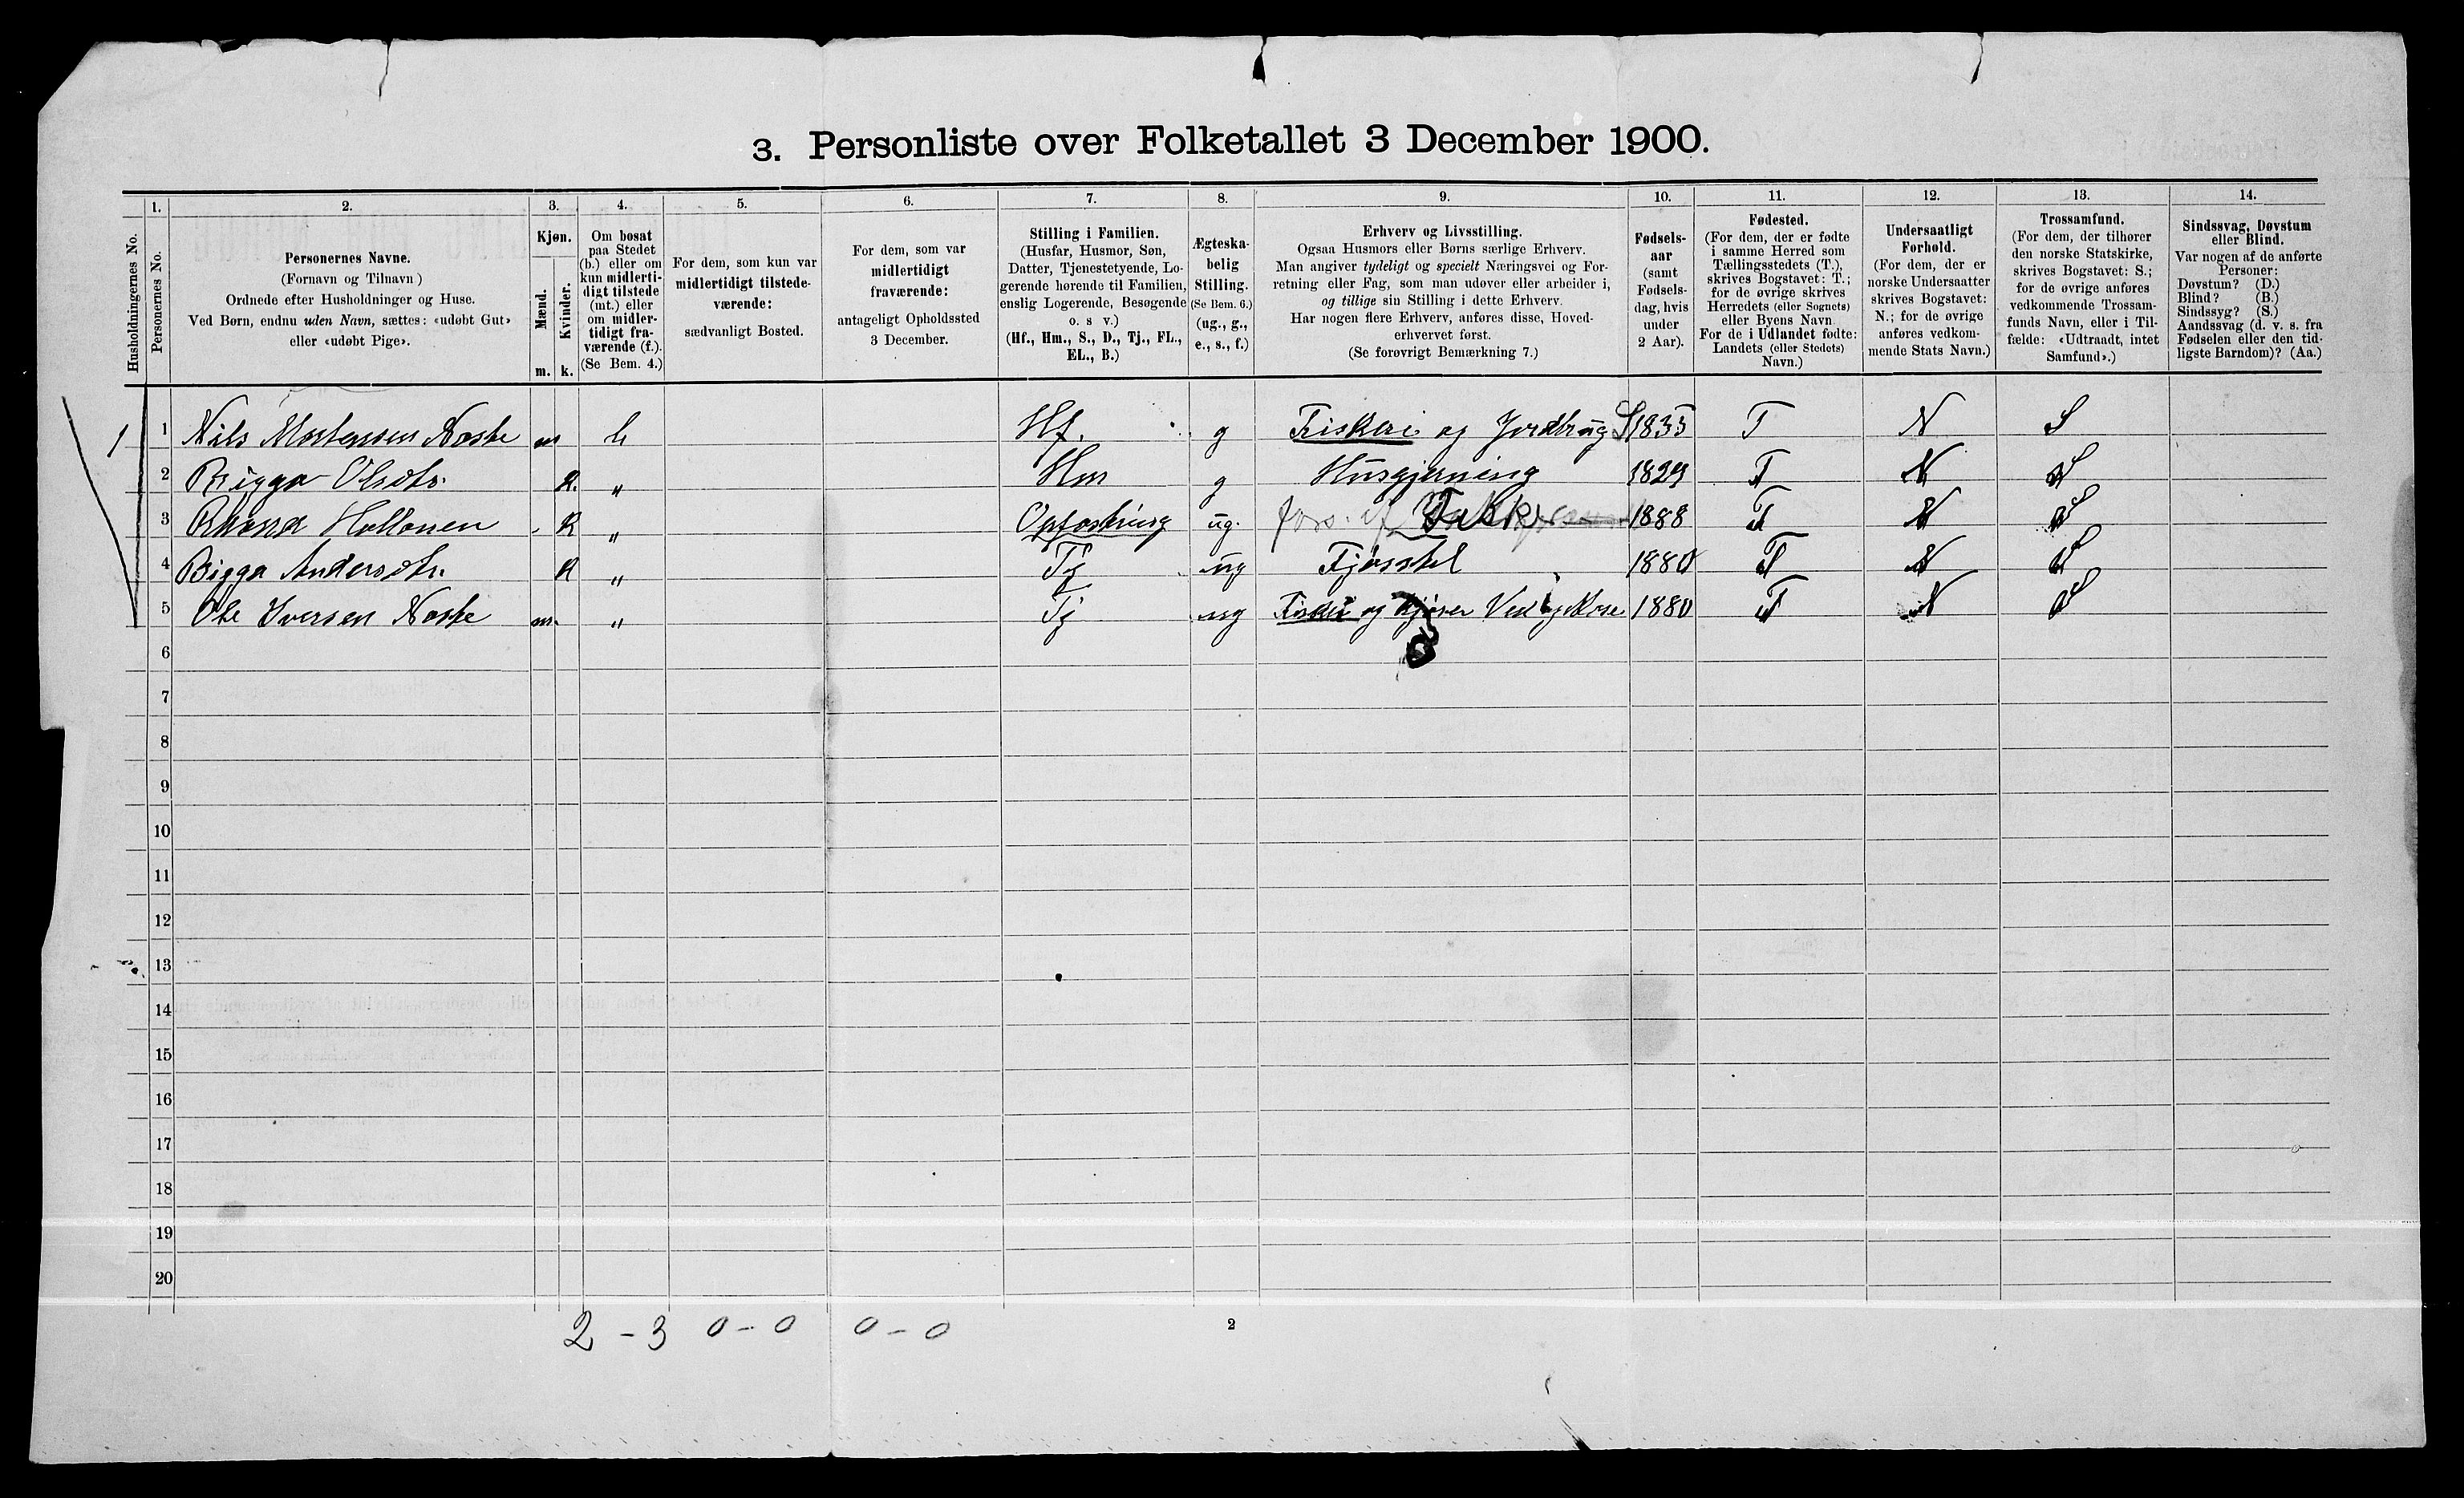 3. Personliste over Folketallet 3 December 1900.
Husholdningernes No.
1. Personernes No.
2. Personernes Navne.
(Fornavn og Tilnavn)
Ordnede efter Husholdninger og Huse.
Ved Børn, endnu uden Navn, sættes: «udøbt Gut»
eller «udøbt Pige».
3. Kjøn.
Mænd. m.
Kvinder. k.
4. Om bosat
paa Stedet
(b.) eller om
kun midlerti-
digt tilstede
(mt.) eller
om midler-
tidigt fra-
værende (f.).
(Se Bem. 4.)
5. For dem, som kun var
midlertidigt tilstede-
værende:
sædvanligt Bosted.
6. For dem, som var
midlertidigt
fraværende:
antageligt Opholdssted
3 December.
7. Stilling i Familien.
(Husfar, Husmor, Søn,
Datter, Tjenestetyende, Lo-
gerende hørende til Familien,
enslig Logerende, Besøgende
o. s v.)
(Hf., Hm., S., D., Tj., FL.,
EL., B.)
8. Ægteska-
belig
Stilling.
(Se Bem. 6.)
(ug., g.,
e., s., f.)
9. Erhverv og Livsstilling.
Ogsaa Husmors eller Børns særlige Erhverv.
Man angiver tydeligt og specielt Næringsvei og For-
retning eller Fag, som man udøver eller arbeider i,
og tillige sin Stilling i dette Erhverv.
Har nogen flere Erhverv, anføres disse, Hoved-
erhvervet først.
(Se forøvrigt Bemærkning 7.)
10. Fødsels-
aar
(samt
Fødsels-
dag, hvis
under
2 Aar).
11. Fødested.
(For dem, der er fødte
i samme Herred som
Tællingsstedets (T.),
skrives Bogstavet: T.;
for de øvrige skrives
Herredets (eller Sognets)
eller Byens Navn
For de i Udlandet fødte:
Landets (eller Stedets)
Navn.)
12. Undersaatligt
Forhold.
(For dem, der er
norske Undersaatter
skrives Bogstavet:
N.; for de øvrige
anføres vedkom-
mende Stats Navn.)
13. Trossamfund.
(For dem, der tilhører
den norske Statskirke,
skrives Bogstavet: S.;
for de øvrige anføres
vedkommende Trossam-
funds Navn, eller i Til-
fælde: «Udtraadt, intet
Samfund».)
14. Sindssvag, Døvstum
eller Blind.
Var nogen af de anførte
Personer:
Døvstum? (D.)
Blind? (B.)
Sindssyg? (S.)
Aandssvag (d. v. s. fra
Fødselen eller den tid-
ligste Barndom)? (Aa.)
1 1 Nils Mortensen Næske m b Hf. g Fiskeri og Jordbrug S 1835 T N S
2 Brigga Olsdtr. k. „ Hm g Husgjerning 1829 T N S
3 Hollonen k „ Opfostring ug. fors. af Fisker 1888 T N S
4 Bigga Andersdtr. k „ Tj ug Fjøsstel 1880 T N S
5 Ole Iversen Næske m. „ Tj ug Fiskeri og kjører Ved og Mose 1880 T N S
6
7
8
9
10
11
12
13
14
15
16
17
18
19
20
2 - 3 0 - 0 0 - 0
2